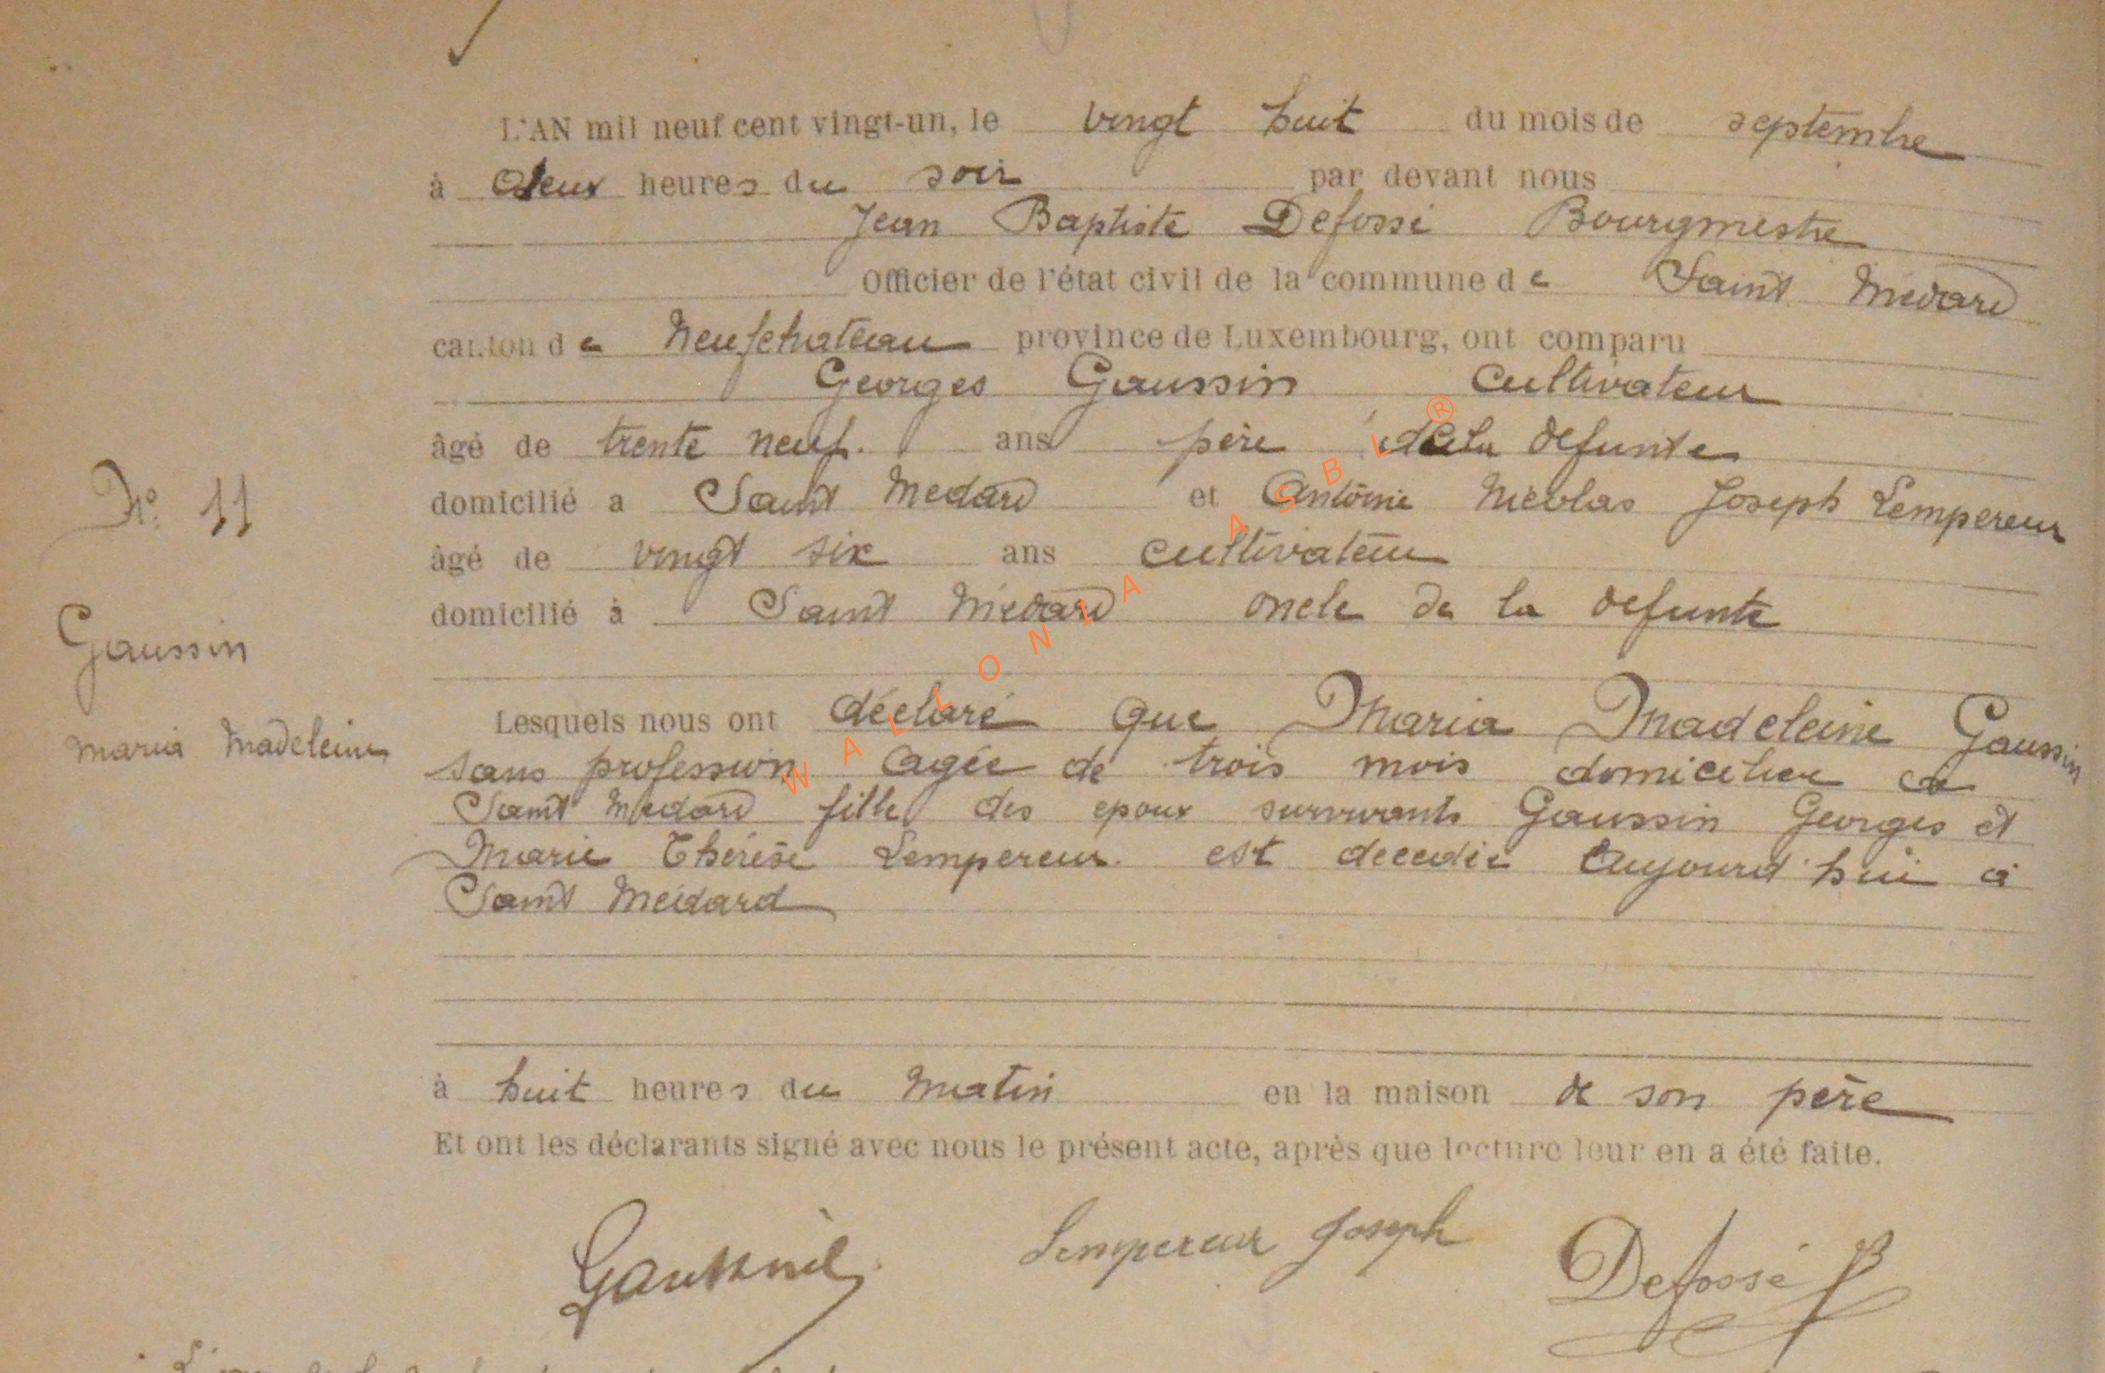 L'AN mil neuf cent vingt-un, le vingt huit du mois de septembre
à deux heures du soir par devant nous
Jean Baptiste Defossé Bourgmestre
Officier de l'état civil de la commune de Saint Médard
canton de Neufchateau province de Luxembourg, ont comparu
Georges Gaussin cultivateur
âgé de trente neuf. ans père de la defunte
domicilié a Saint Medard et Antoine Nicolas Joseph Lempereur
âgé de vingt six ans cultivateur
domicilié à Saint Médard oncle de la defunte
N° 11
Gaussin
Maria Madeleine
Lesquels nous ont déclaré que Maria Madeleine Gaussin
sans profession agée de trois mois domiciliee a
Saint Médard fille des epoux survivants Gaussin Georges et
Marie Thérèse Lempereur. est decedée aujourd'hui à
Saint Médard
à huit heures du matin en la maison de son père
Et ont les déclarants signé avec nous le présent acte, après que lecture leur en a été faite.
Lempereur Joseph Defossé JB
WALLONIA ASBL ®